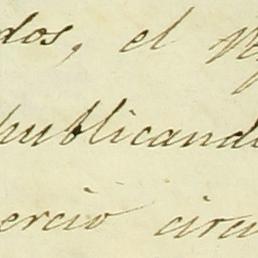 dos, el
publicand
ercio circu